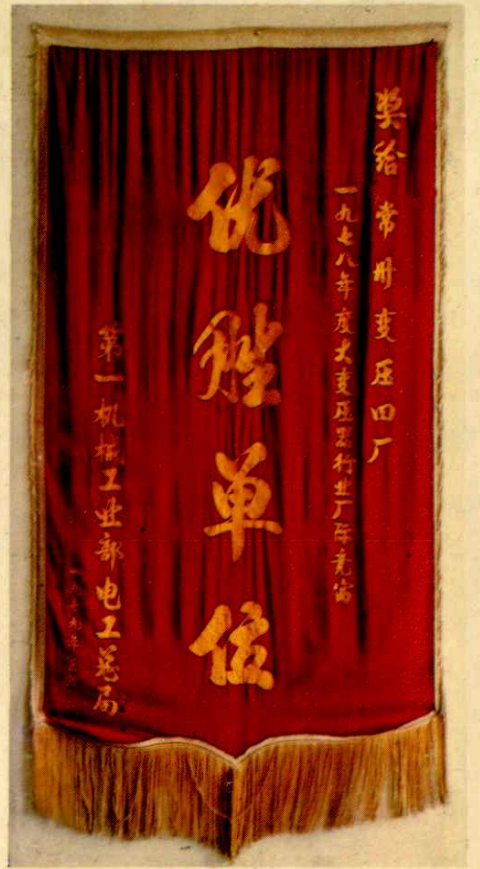 奖给常州变压器厂
一九七八年度大变压器行业厂际竞赛
优胜单位
第一机械工业部电工总局
一九七九年